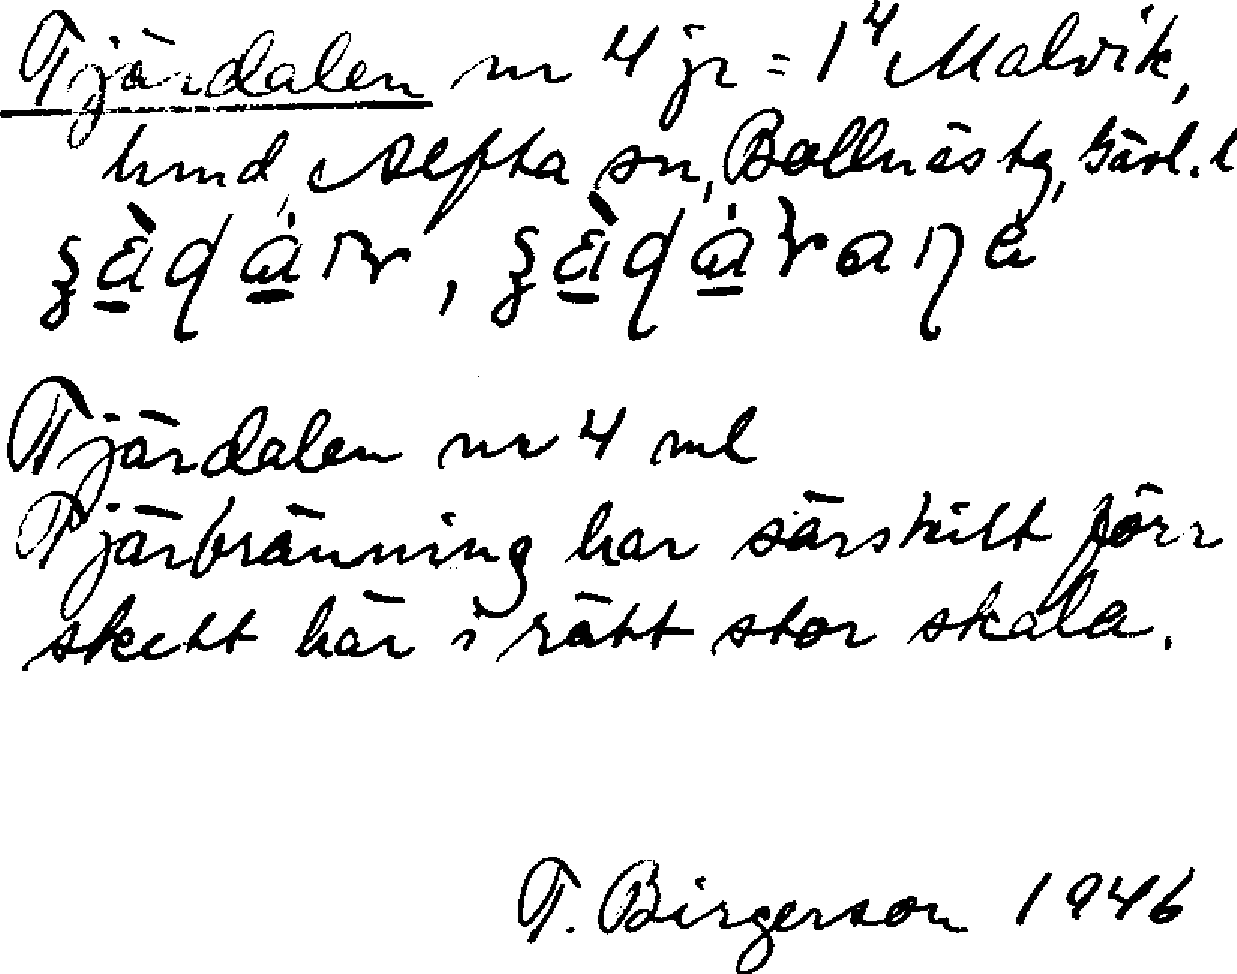 Tjärdalen nr 4 jr = 1⁴ Malvik,
hmd, Alfta sn, Bollnäs tg, Gävl. l
Tjärdalen nr 4 ml
Tjärbränning har särskilt förr
skett här i rätt stor skala.
T. Birgerson 1946